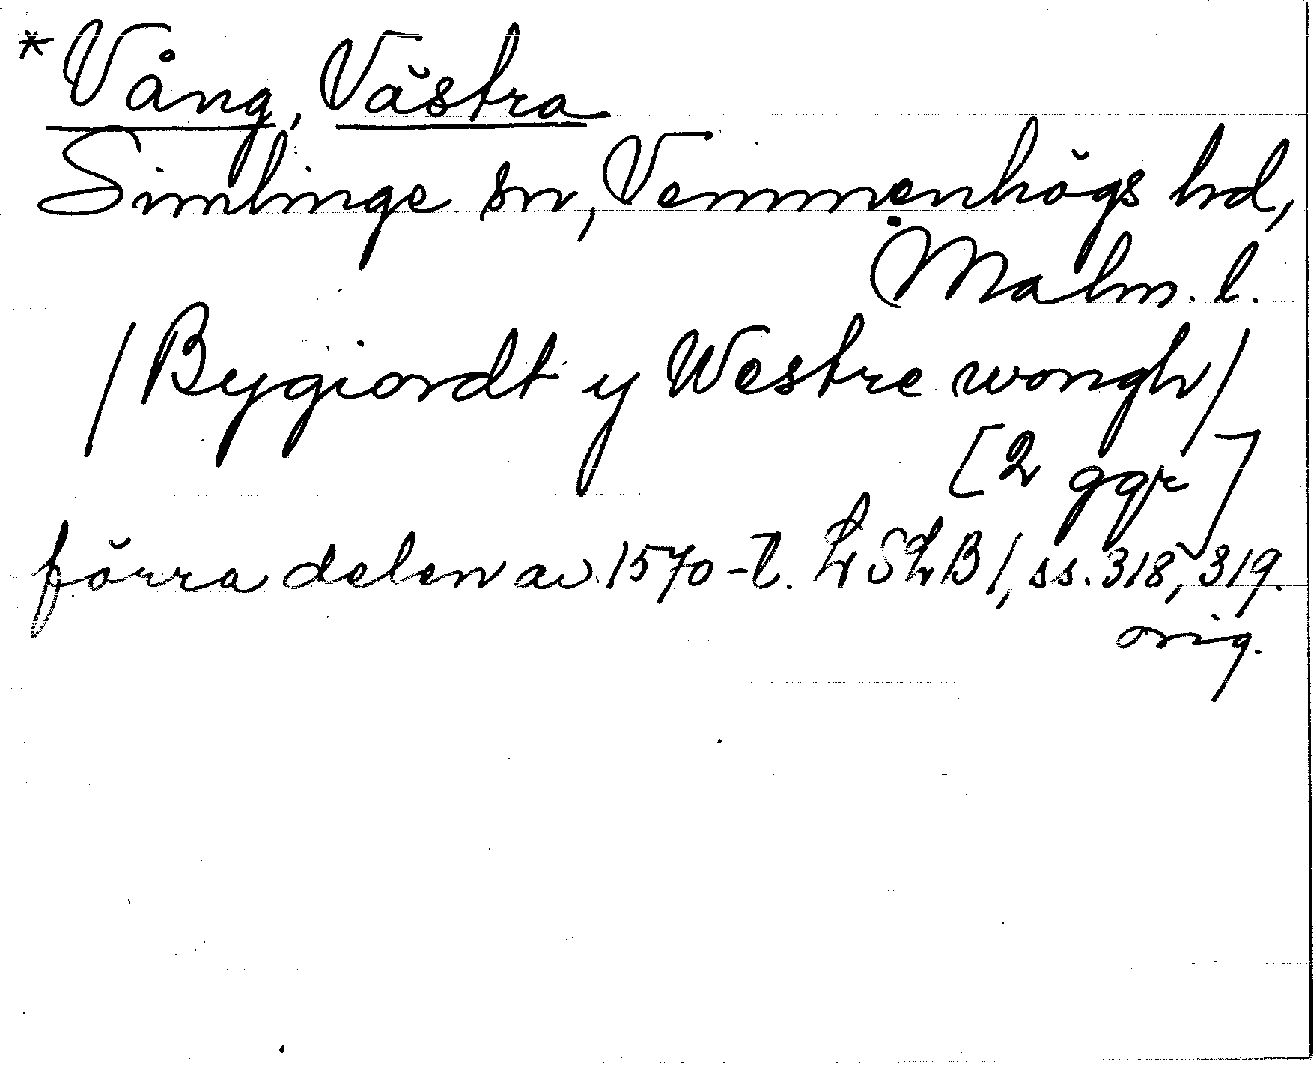 *Vång, Västra
Simlinge sn, Vemmenhögs hd,
Malm. l.
/Bygiordt y Westre wongh/
[2 ggr]
förra delen av 1570-t. LSLB 1, ss. 318, 319.
orig.